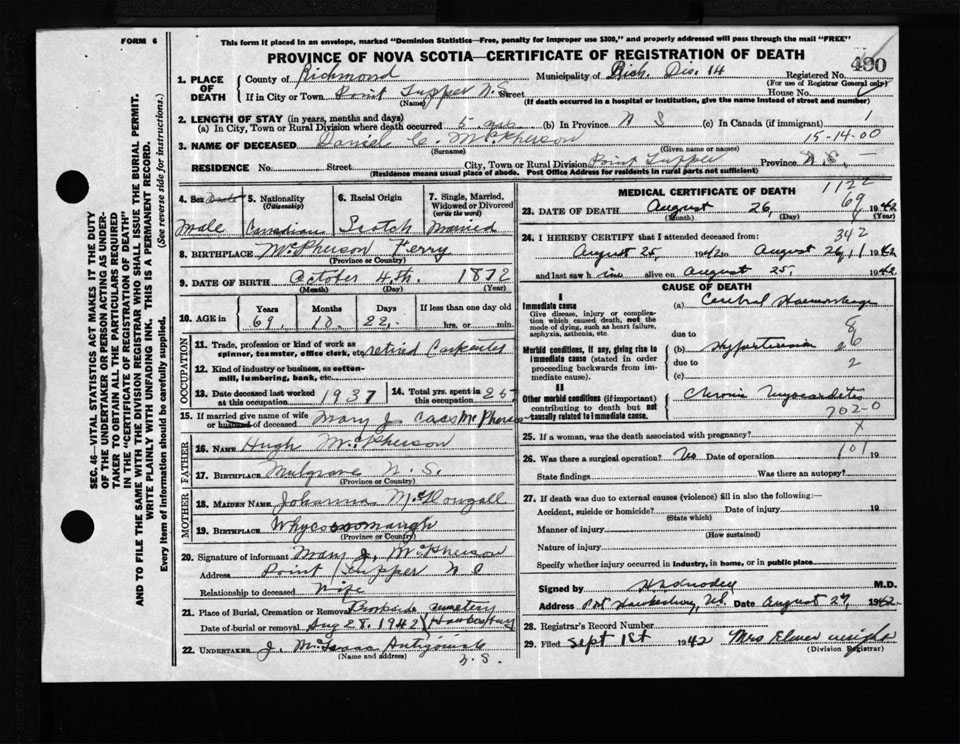 FORM 6
This form if placed in an envelope, marked "Dominion Statistics—Free, penalty for improper use $300," and properly addressed will pass through the mail "FREE"
PROVINCE OF NOVA SCOTIA—CERTIFICATE OF REGISTRATION OF DEATH
480
1. PLACE OF DEATH
County of Richmond Municipality of Rich. Dis. 14 Registered No.
(For use of Registrar General only)
If in City or Town Point Tupper N.S. Street House No.
(Name) (If death occurred in a hospital or institution, give the name instead of street and number)
2. LENGTH OF STAY (in years, months and days)
(a) In City, Town or Rural Division where death occurred 5 yrs (b) In Province N S (c) In Canada (if immigrant)
15-14-00
3. NAME OF DECEASED Daniel C. McPherson
(Surname) (Given name or names)
RESIDENCE No. Street City, Town or Rural Division Point Tupper Province N.S.
(Residence means usual place of abode. Post Office Address for residents in rural parts not sufficient)
4. Sex Male
5. Nationality (Citizenship) Canadian
6. Racial Origin Scotch
7. Single, Married, Widowed or Divorced (write the word) Married
8. BIRTHPLACE McPherson Ferry
(Province or Country)
9. DATE OF BIRTH October 4th. 1872
(Month) (Day) (Year)
10. AGE in Years Months Days If less than one day
69 10 22 hrs. or min.
OCCUPATION
11. Trade, profession or kind of work as spinner, teamster, office clerk, etc. retired Carpenter
12. Kind of industry or business, as cotton-mill, lumbering, bank, etc.
13. Date deceased last worked at this occupation 1937
14. Total yrs. spent in this occupation 25
15. If married give name of wife or husband of deceased Mary J. McPherson
FATHER
16. NAME Hugh McPherson
17. BIRTHPLACE Mulgrave N.S.
(Province or Country)
MOTHER
18. MAIDEN NAME Johanna McDougall
19. BIRTHPLACE Whycocomaugh
(Province or Country)
20. Signature of informant Mary J. McPherson
Address Point Tupper N S
Relationship to deceased Wife
21. Place of Burial, Cremation or Removal Brookside Cemetery
Date of burial or removal Aug 28. 1942 Hawkesbury
22. UNDERTAKER J. Antigonish N.S.
(Name and address)
MEDICAL CERTIFICATE OF DEATH
1122
69
23. DATE OF DEATH August 26, 1942
(Day) (Year)
342
24. I HEREBY CERTIFY that I attended deceased from:
August 25, 1942 to August 26, 1942
and last saw him alive on August 25, 1942
CAUSE OF DEATH
I
Immediate cause
Give disease, injury or complication which caused death, not the mode of dying, such as heart failure, asphyxia, asthenia, etc.
(a) Cerebral Haemorrhage
due to 8
Morbid conditions, if any, giving rise to immediate cause (stated in order proceeding backwards from immediate cause).
(b) Hypertension 26
due to 2
(c)
II
Other morbid conditions (if important) contributing to death but not causally related to immediate cause.
Chronic Myocarditis
702-0
25. If a woman, was the death associated with pregnancy? X
101
26. Was there a surgical operation? No Date of operation 19
State findings Was there an autopsy?
27. If death was due to external causes (violence) fill in also the following:—
Accident, suicide or homicide? Date of injury 19
(State which)
Manner of injury
(How sustained)
Nature of injury
Specify whether injury occurred in industry, in home, or in public place
Signed by M.D.
Address Port Hawkesbury, N.S. Date August 27, 1942
28. Registrar's Record Number
29. Filed Sept 1st 1942 Mrs Elmer
(Division Registrar)
SEC. 46—VITAL STATISTICS ACT MAKES IT THE DUTY
OF THE UNDERTAKER OR PERSON ACTING AS UNDER-
TAKER TO OBTAIN ALL THE PARTICULARS REQUIRED
IN THE "CERTIFICATE OF REGISTRATION OF DEATH"
AND TO FILE THE SAME WITH THE DIVISION REGISTRAR WHO SHALL ISSUE THE BURIAL PERMIT.
WRITE PLAINLY WITH UNFADING INK. THIS IS A PERMANENT RECORD.
Every item of information should be carefully supplied. (See reverse side for instructions.)